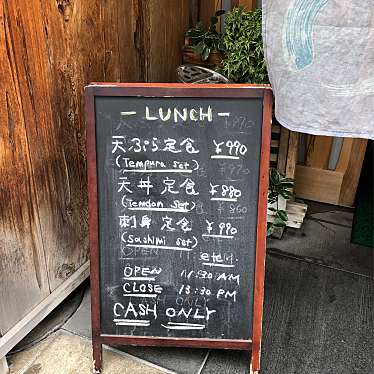 - LUNCH -
天ぷら定食 ¥990
(Tempura set)
天丼定食 ¥880
(Temdon set)
刺身定食 ¥990
(Sashimi set)
OPEN 11:30 AM
CLOSE 13:30 PM
CASH ONLY